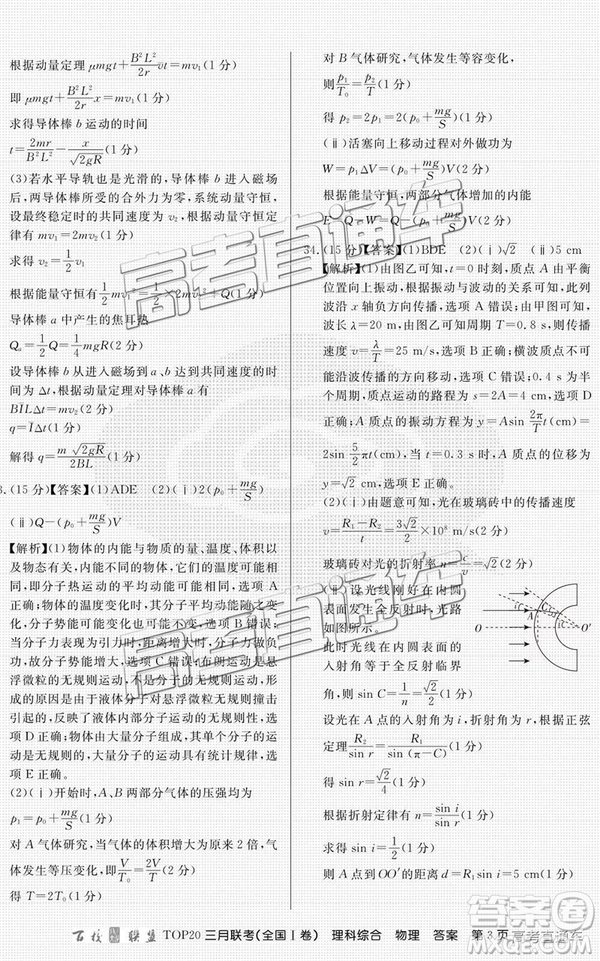 根据动量定理 μmgt+\frac{B²L²}{2r}vt=mv₁(1 分)
即 μmgt+\frac{B²L²}{2r}x=mv₁(1 分)
求得导体棒 b 运动的时间
t=\frac{2mr}{B²L²}-\frac{x}{\sqrt{2gR}}(1 分)
(3)若水平导轨也是光滑的，导体棒 b 进入磁场
后，两导体棒所受的合外力为零，动量守恒，
设最终稳定时的共同速度为 v₂，根据动量守恒定
律有 mv₁=2mv₂(1 分)
求得 v₂=\frac{1}{2}v₁
根据能量守恒有\frac{1}{2}mv₁²=\frac{1}{2}×2mv₂²+Q(1 分)
导体棒 a 中产生的焦耳热
Qₐ=\frac{1}{2}Q=\frac{1}{4}mgR(1 分)
设导体棒 b 从进入磁场，到两导体棒达到共同速
度，根据动量定理对导体棒 a 有
B\bar{I}LΔt=mv₂(1 分)
q=\bar{I}Δt(1 分)
解得 q=\frac{m\sqrt{2gR}}{2BL}(1 分)
3.(15 分)【答案】(1)ADE (2)(ⅰ)2(p₀+\frac{mg}{S})
(ⅱ)Q-(p₀+\frac{mg}{S})V
【解析】(1)物体的内能与物质的量、温度、体积以
及物态有关，选项 A 正确；物体的内能变化时，
分子热运动的平均动能可能不变，选项 B
错误；物体的温度变化时，其分子平均动能随之改
变，分子势能可能变化也可能不变，选项 C 错误；
当分子力表现为引力时，距离增大，分子力做负
功，分子势能增大，选项 C 错误；布朗运动是
悬浮微粒的无规则运动，不是分子的运动，
形成的原因是由于液体分子对悬浮微粒无规则
撞击引起的，反映了液体内部分子运动的无规则性，选
项 D 正确；大量分子做无规则运动的速率有大有
小，大量分子速率分布有统计规律，选项 E 正确。
(2)(ⅰ)开始时，A、B 两部分气体的压强均为
p₁=p₀+\frac{mg}{S}(1 分)
对 A 气体研究，当气体的体积变为原来 2 倍，气
体发生等压变化，则有\frac{V}{T₀}=\frac{2V}{T}(2 分)
得 T=2T₀(1 分)
对 B 气体研究，气体发生等容变化
则\frac{p₁}{T₀}=\frac{p₂}{T}(1 分)
得 p₂=2p₁=2(p₀+\frac{mg}{S})(1 分)
(ⅱ)活塞向上移动过程对外做功为
W=p₁ΔV=(p₀+\frac{mg}{S})V(2 分)
根据能量守恒，两部分气体增加的内能
E=Q-W=Q-(p₀+\frac{mg}{S})V(2 分)
34.(15 分)【答案】(1)BDE (2)(ⅰ)\sqrt{2} (ⅱ)5 cm
【解析】(1)由图乙可知，t=0 时刻，质点 A 由平衡
位置向上振动，根据振动与波动的关系可知，此列
波沿 x 轴负方向传播，选项 A 错误；由甲图可知，
波长 λ=20 m，由图乙可知，周期 T=0.8 s，则传播
速度 v=\frac{λ}{T}=25 m/s，选项 B 正确；横波质点不可
能沿波传播的方向移动，选项 C 错误；0.4 s 为半
个周期，质点 A 的路程为 s=2A=4 cm，选项 D
正确。A 质点的振动方程为 y=Asin \frac{2π}{T}t(cm)=
2sin \frac{5}{2}πt(cm)，当 t=0.3 s 时，
选项 E 正确。
(2)(ⅰ)由题意可知，光在玻璃砖中的传播速度
v=\frac{R₁-R₂}{t}=\frac{3\sqrt{2}}{2}×10⁸ m/s(2 分)
玻璃砖对光的折射率 n=\frac{c}{v}=\sqrt{2}(2 分)
(ⅱ)设光线刚好在内圆
表面发生全反射时，光路
如图所示。
此时光线在内圆表面的
入射角等于全反射临界
角，则 sin C=\frac{1}{n}=\frac{\sqrt{2}}{2}(1 分)
设光在 A 点的入射角为 i，折射角为 r，根据正弦
定理\frac{R₁}{sin C}=\frac{R₂}{sin r}(1 分)
得 sin r=\frac{\sqrt{2}}{4}(1 分)
根据折射定律有 n=\frac{sin i}{sin r}(1 分)
求得 sin i=\frac{1}{2}(1 分)
则 A 点到 OO′的距离 d=R₁sin i=5 cm(1 分)
O O′
A
百校联盟 TOP20 三月联考(全国Ⅰ卷) 理科综合 物理 答案 第 3 页
高考直通车
高考直通车
高考直通车